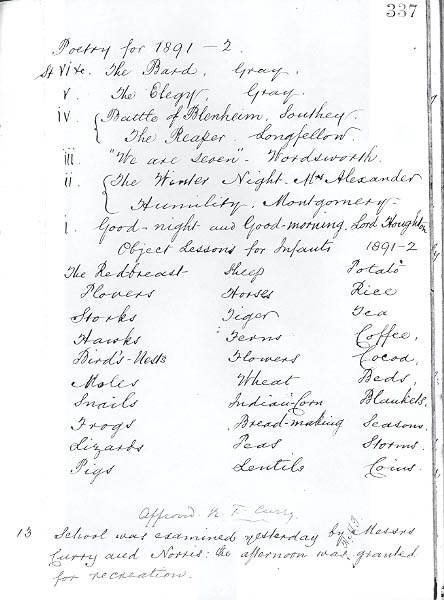 337
Poetry for 1891-2.
St VI &c. The Bard, Gray.
v. The Elegy, Gray.
iv. Battle of Blenheim, Southey.
The Reaper. Longfellow.
iii. "We are seven" - Wordsworth.
ii. The Winter Night. Mrs Alexander
Humility. Montgomery -
i. Good-night and Good-morning. Lord Houghton
Object Lessons for Infants 1891-2
The Redbreast Sheep Potato
Plovers Horses Rice
Storks Tiger Tea
Hawks Ferns Coffee,
Bird's-Nests Flowers Cocoa,
Moles Wheat Beds,
Snails Indian-Corn Blankets,
Frogs Bread-making Seasons.
Lizards Peas Storms.
Pigs Lentils Coins.
Approved R. F. Curry
13 School was examined yesterday by Messrs
Curry and Norris: the afternoon was granted
for recreation.